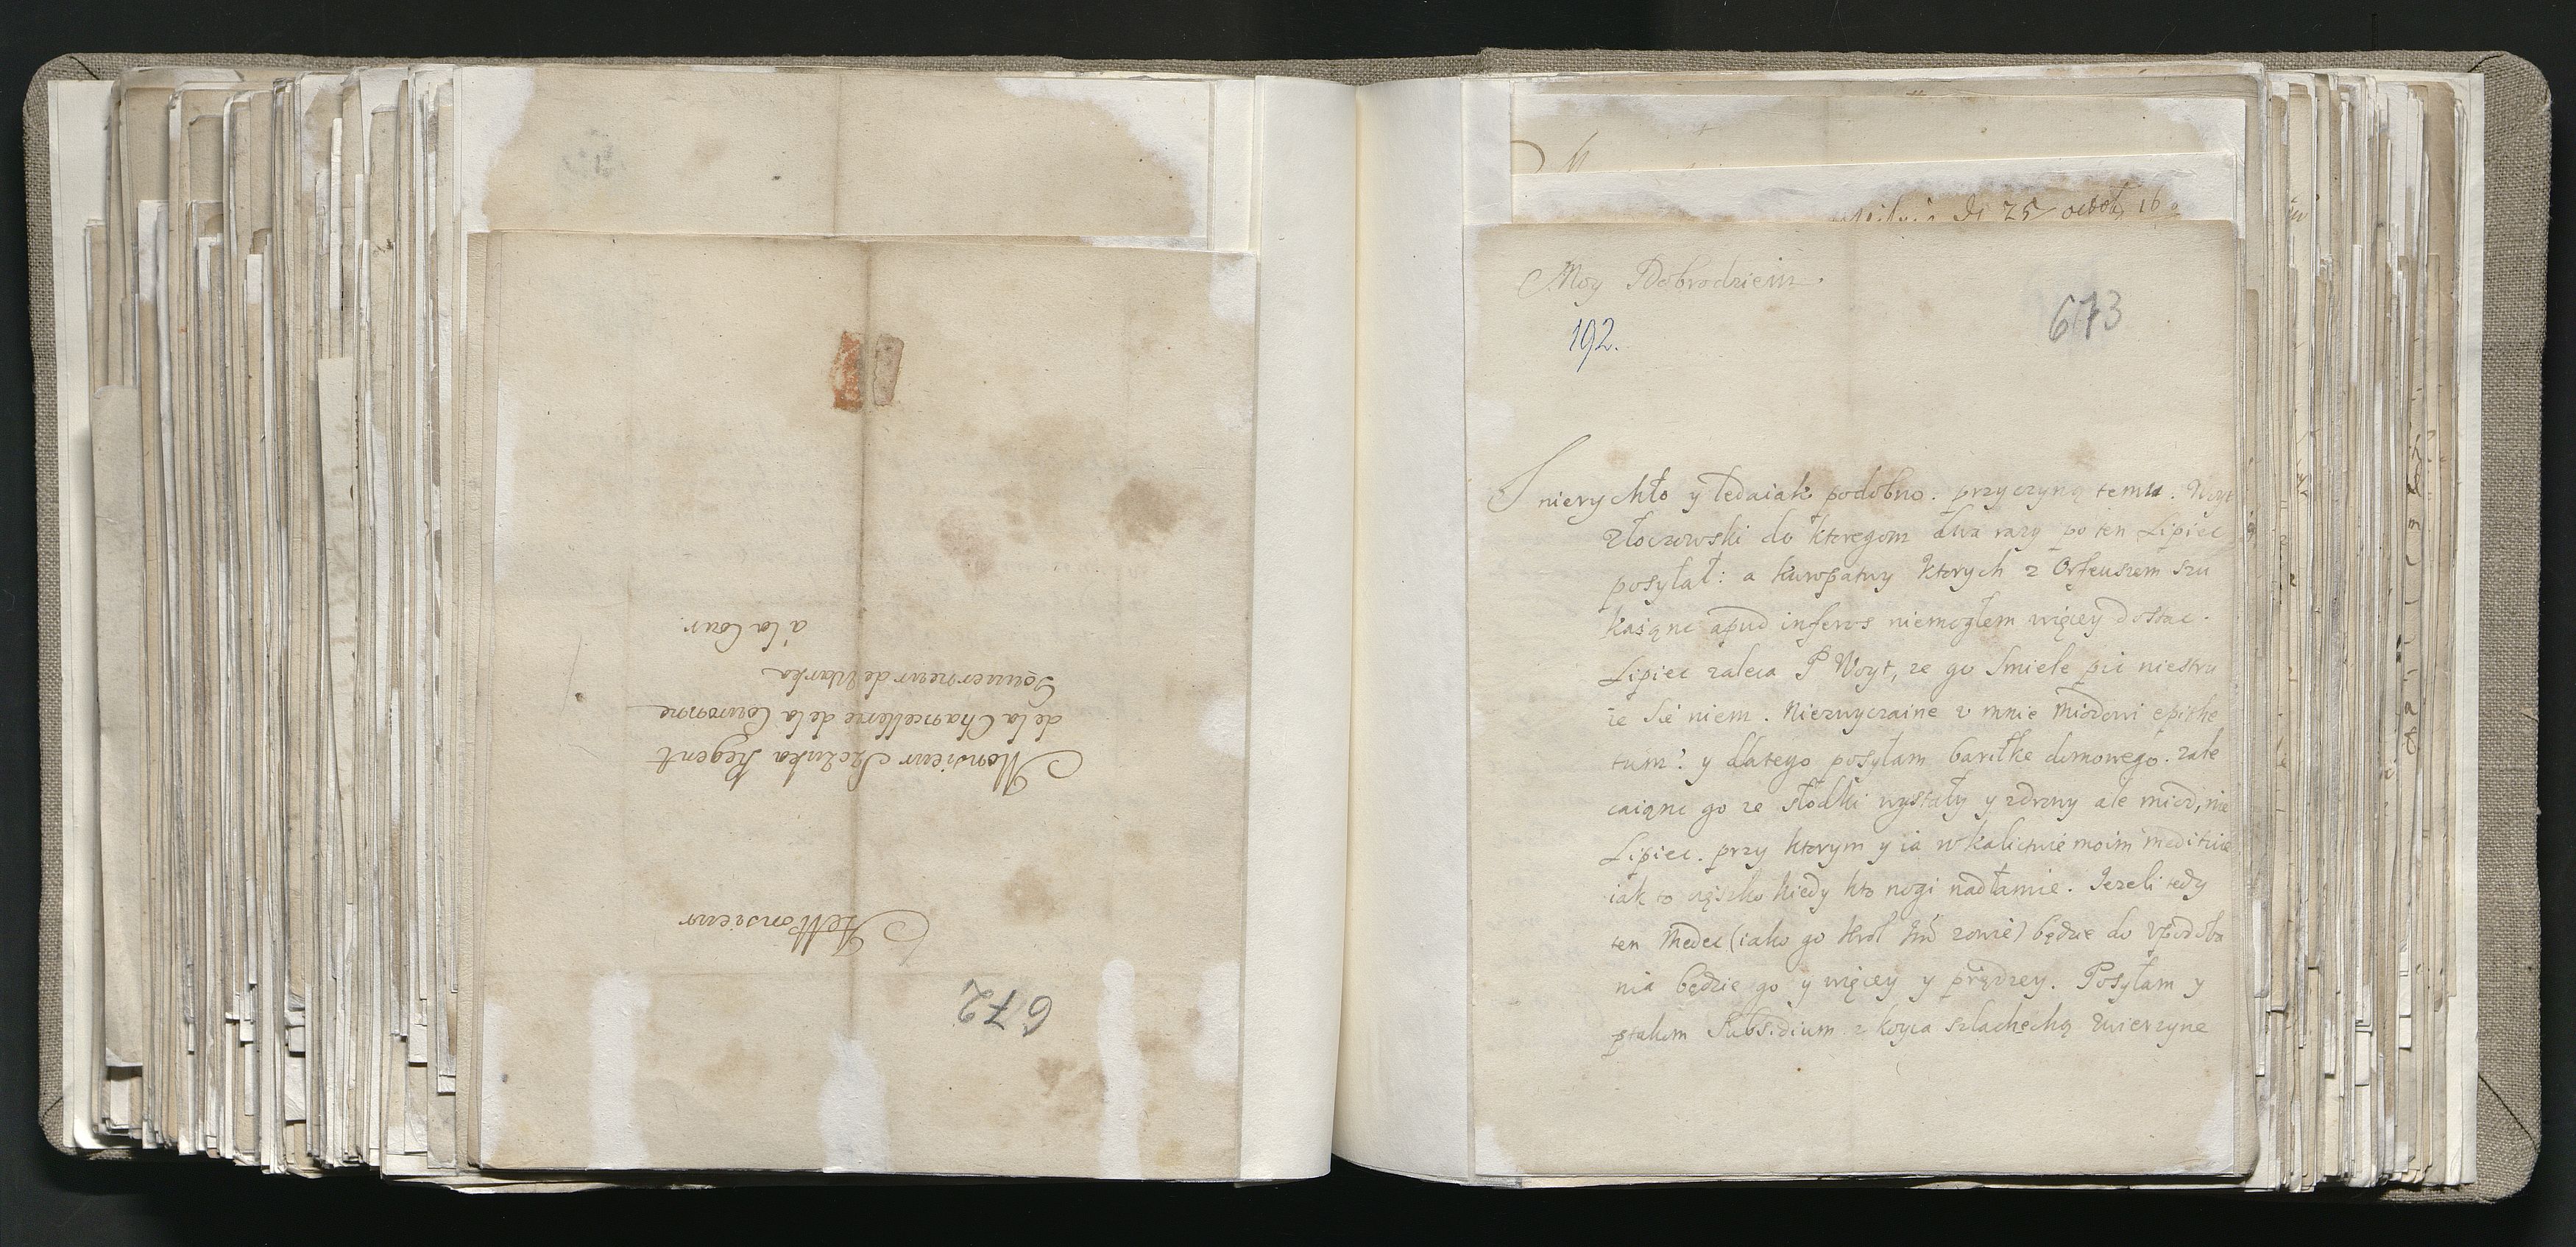 672
A Monsieur
Monsieur Szczuka Regent
de la Chancellerie de la Couronne
Gouverneur de Warka
à la Cour.
25 octob. 16
Moy Dobrodzieiu.
192.
673
I nierychło y ledaiako podobno. przyczyną temu. Woyt
Złoczowski do ktoregom dwa razy po ten Lipiec
posyłał: a kuropatwy ktorych z Orfeuszem szu
kaiąnc apud inferos niemogłem więcey dostac.
Lipiec zaleca P Woyt, ze go smiele pić niestru
ie się niem. Niezwyczaine v mnie miodowi epithe
tum: y dlatego posyłam bariłke domowego. zale
caiąnc go ze słodki wystały y zdrowy ale miod, nie
Lipiec. przy ktorym y ia w kalictwie moim medituie
iak to cięszko kiedy kto nogi nadłamie. Jezeli tedy
ten Medec (iako go Krol Jmć zowie) będzie do vpodoba
nia będzie go y więcey y prędzey. Posyłam y
ptakom Subsidium z koyca szlachecką zwierzyne